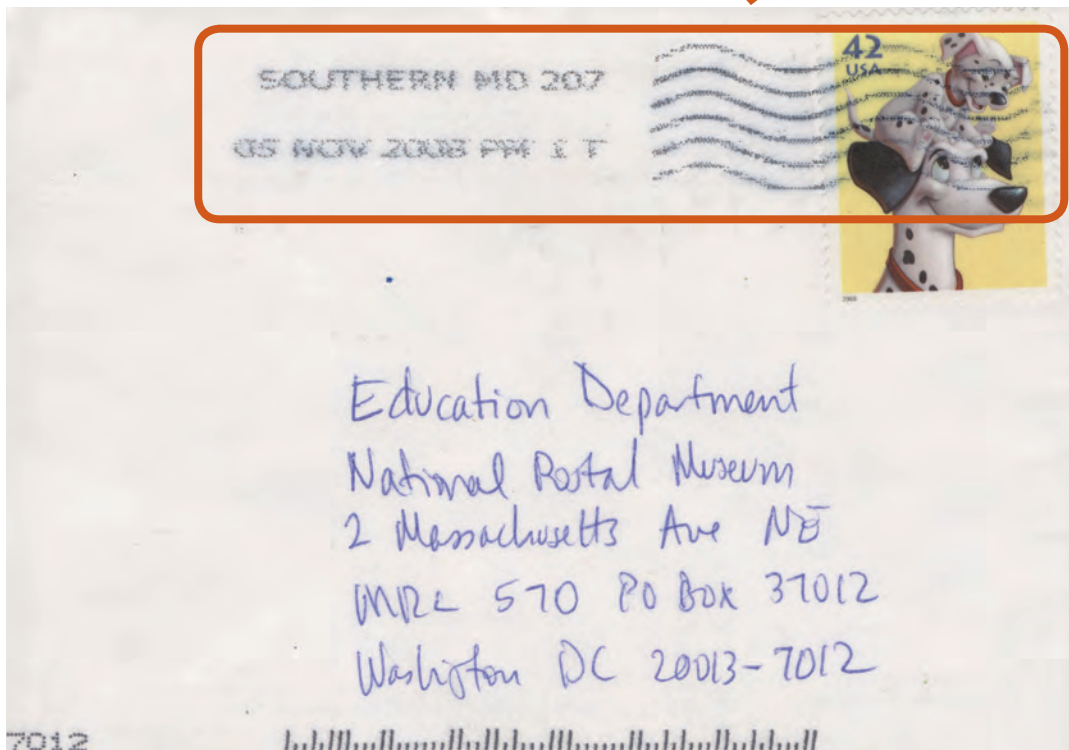 SOUTHERN MD 207
05 NOV 2008 PM 1 T
42
USA
2008
Education Department
National Postal Museum
2 Massachusetts Ave NE
MRC 570 PO Box 37012
Washigton DC 20013-7012
7012